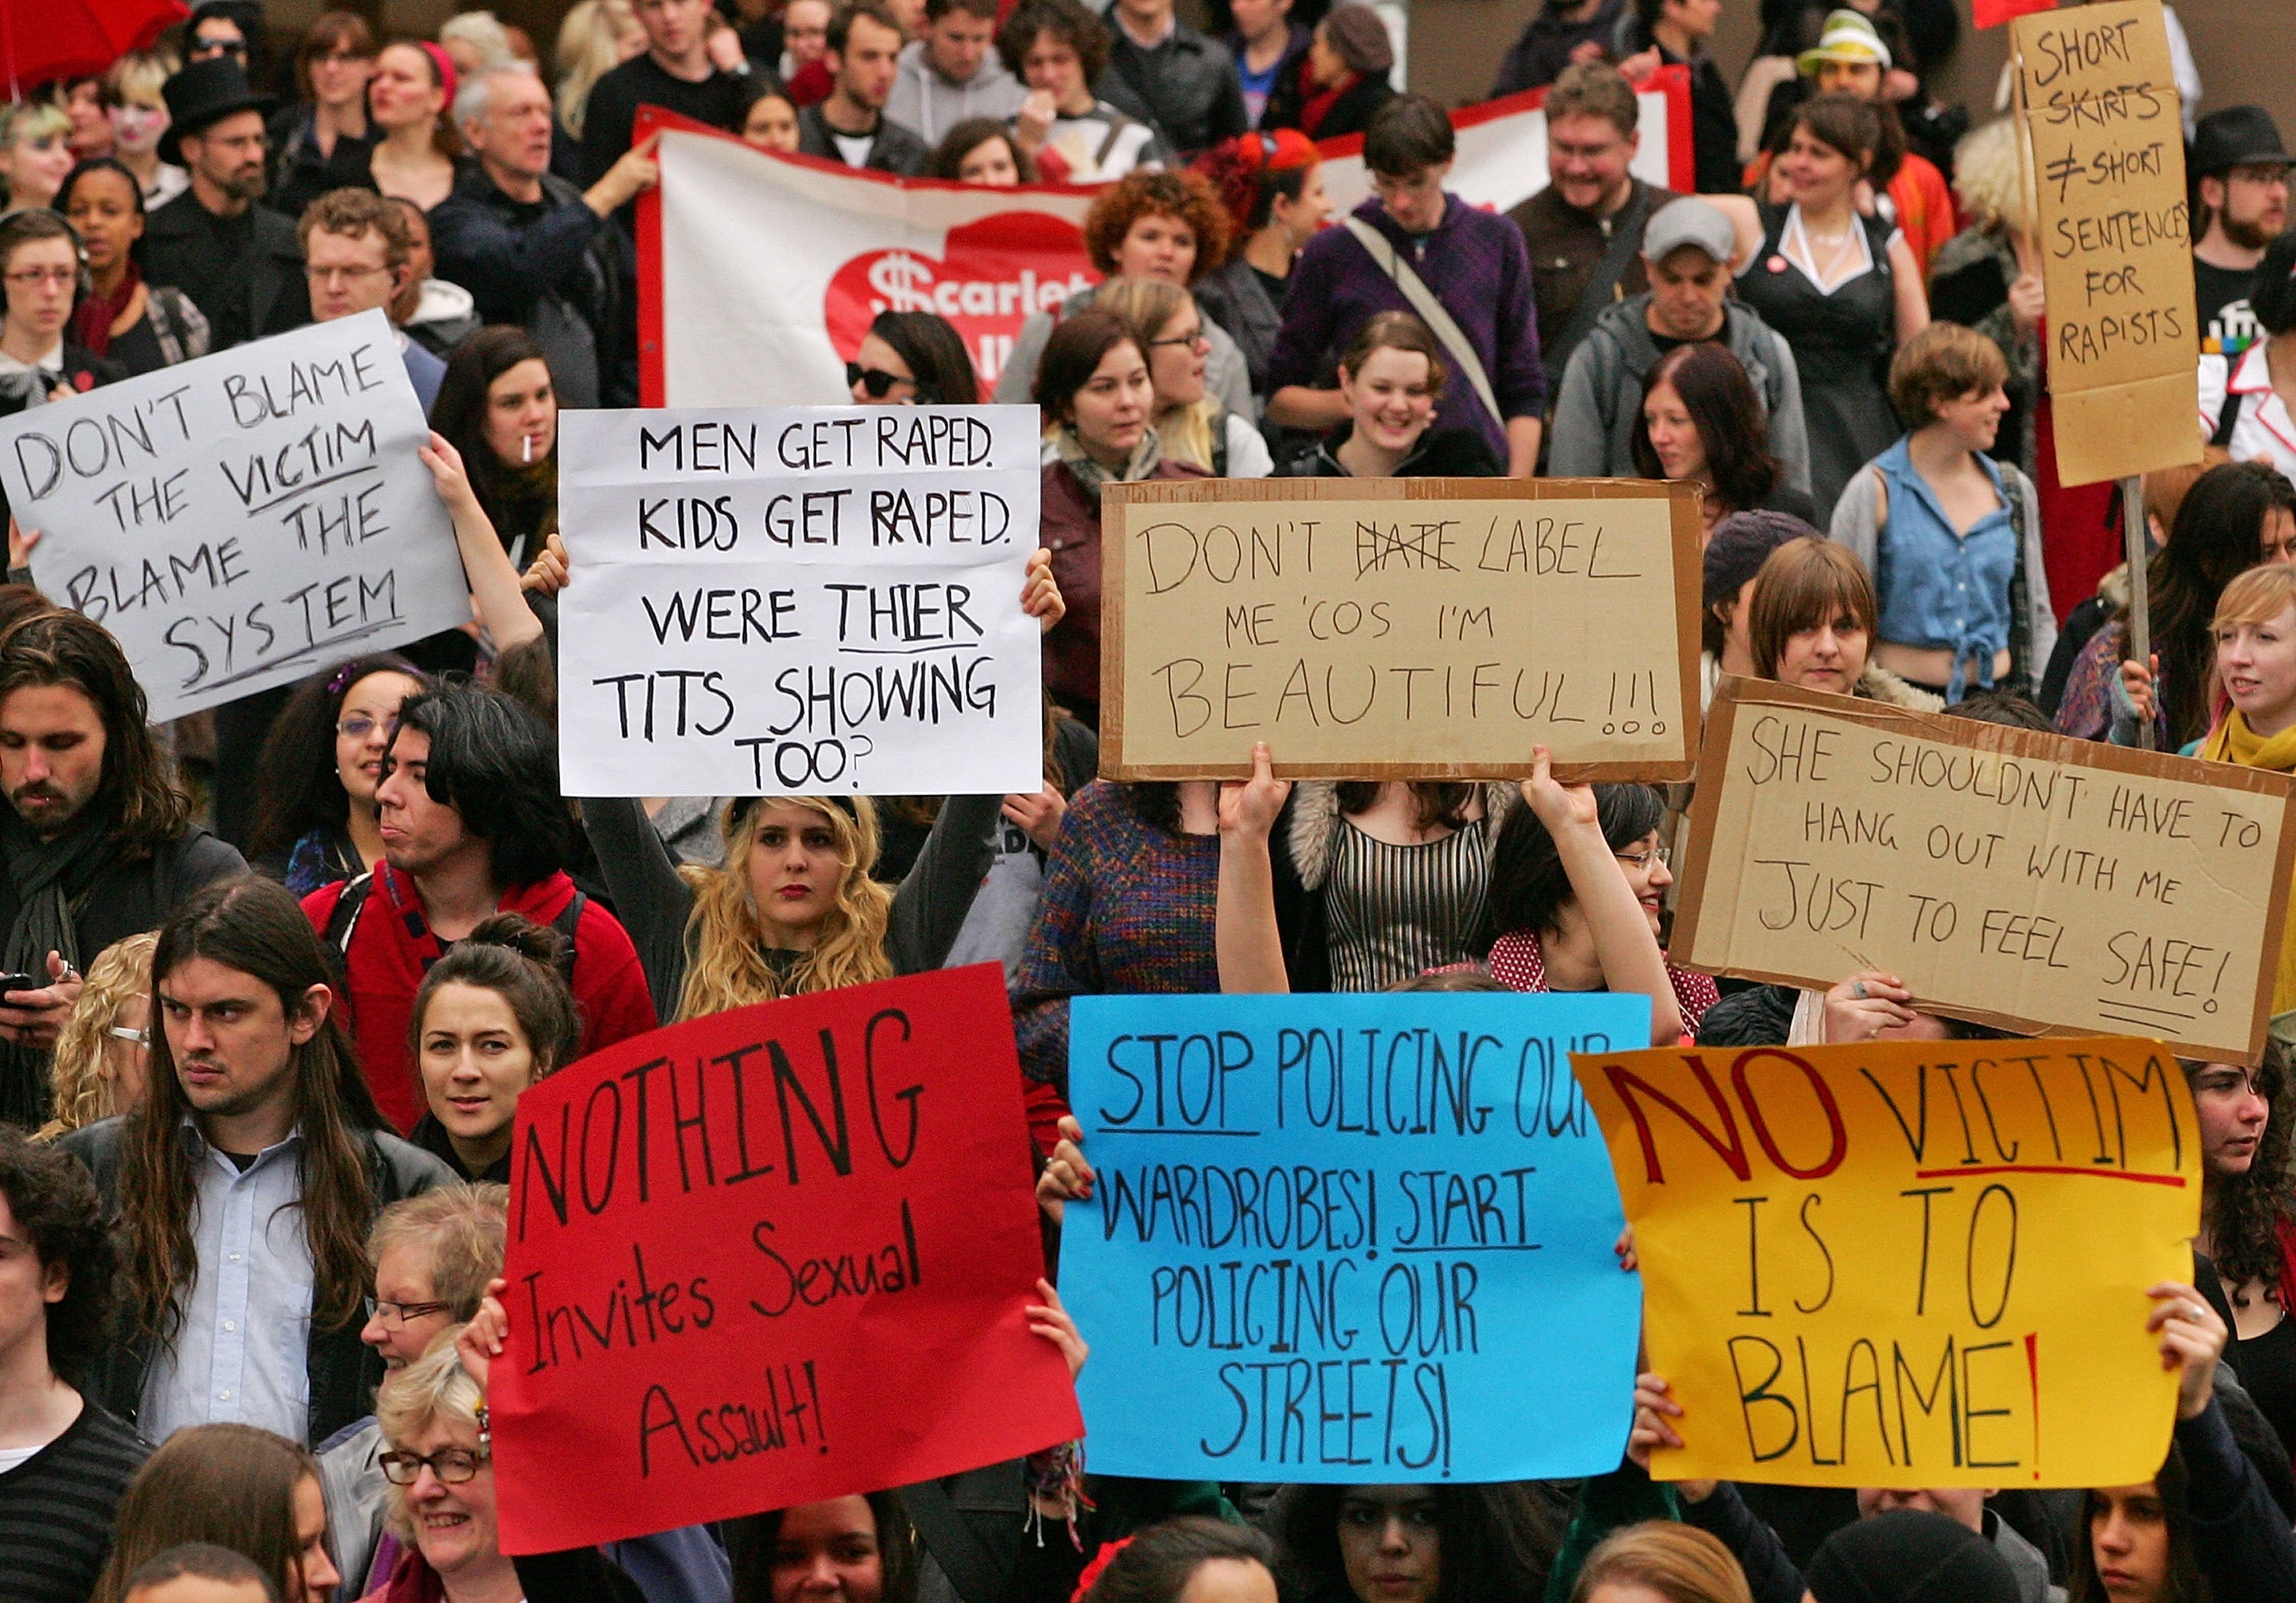 SHORT
SKIRTS
≠ SHORT
SENTENCES
FOR
RAPISTS
$carlet
DON'T BLAME
THE VICTIM
BLAME THE
SYSTEM
MEN GET RAPED.
KIDS GET RAPED.
WERE THIER
TITS SHOWING
TOO?
DON'T HATE LABEL
ME 'COS I'M
BEAUTIFUL!!!
SHE SHOULDN'T HAVE TO
HANG OUT WITH ME
JUST TO FEEL SAFE!
NOTHING
Invites Sexual
Assault!
STOP POLICING OUR
WARDROBES! START
POLICING OUR
STREETS!
NO VICTIM
IS TO
BLAME!